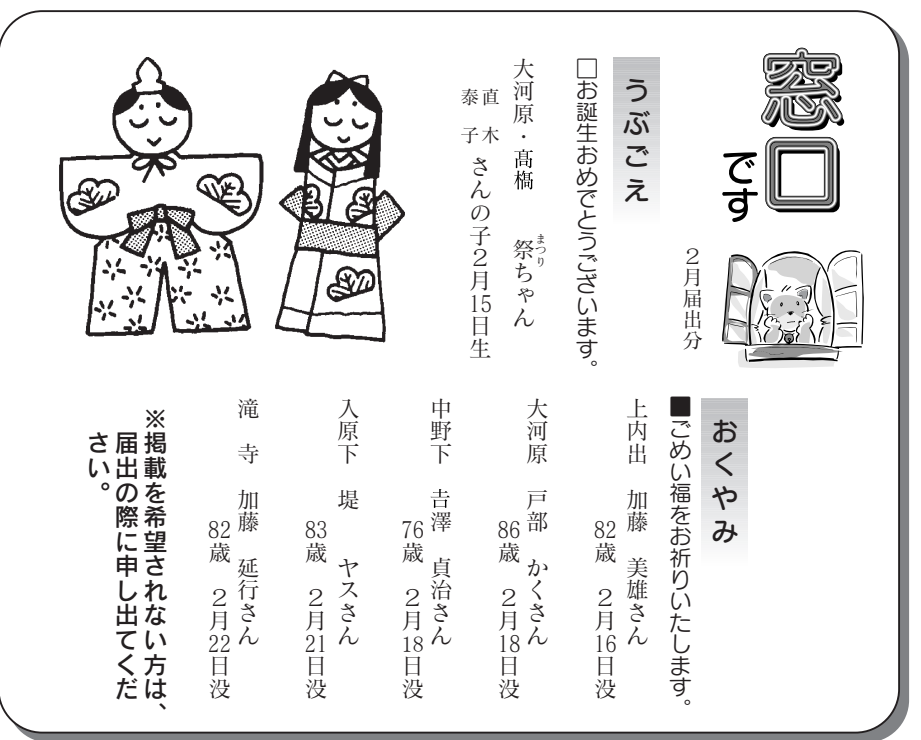 窓口
です
2月届出分
うぶごえ
□お誕生おめでとうございます。
大河原・髙橋 祭ちゃん
まつり
直木
泰子
さんの子2月15日生
おくやみ
■ごめい福をお祈りいたします。
上内出 加藤 美雄さん
82歳 2月16日没
大河原 戸部 かくさん
86歳 2月18日没
中野下 𠮷澤 貞治さん
76歳 2月18日没
入原下 堤 ヤスさん
83歳 2月21日没
滝寺 加藤 延行さん
82歳 2月22日没
※掲載を希望されない方は、
届出の際に申し出てくだ
さい。